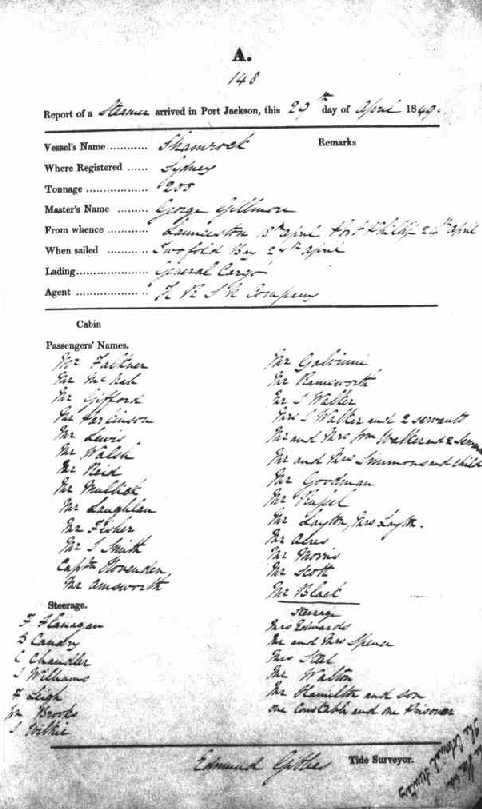 A.
148
Report of a Steamer arrived in Port Jackson, this 29th day of April 1849.
Vessel's Name ........... Shamrock Remarks
Where Registered ...... Sydney
Tonnage ................... 200
Master's Name ......... George Gillmore
From whence ............ Launceston 18th April Port Phillip 24th April
When sailed ............... Twofold Bay 28th April
Lading ...................... General Cargo
Agent ....................... H R S N Company
Cabin
Passengers' Names.
Mr Falkner
Mr McNab
Mr Gifford
Mr
Mr Lewis
Mr Walsh
Mr Reid
Mr
Mr Laughlan
Mr Fisher
Mr J Smith
Captn Hovenden
Mr Amsworth
Steerage.
F Flanagan
B Canby
C Chandler
J Williams
F Leigh
Wm Brooks
J
Mr
Mr
Mr J Walker
Mrs J Walker and 2 servants
Mr and Mrs Wm Walker and 2 servants
Mr and Mrs Simmons and child
Mr Goodman
Mr Russel
Mr Layton, Mrs Layton.
Mr Acres
Mr Morris
Mr Scott
Mr Black
Steerage
Mrs Edwards
Mr and Mrs Spence
Mrs Steel
Mr Walton
Mr Hamilton and son
one Constable and one Prisoner
Edmund Gibbes Tide Surveyor.